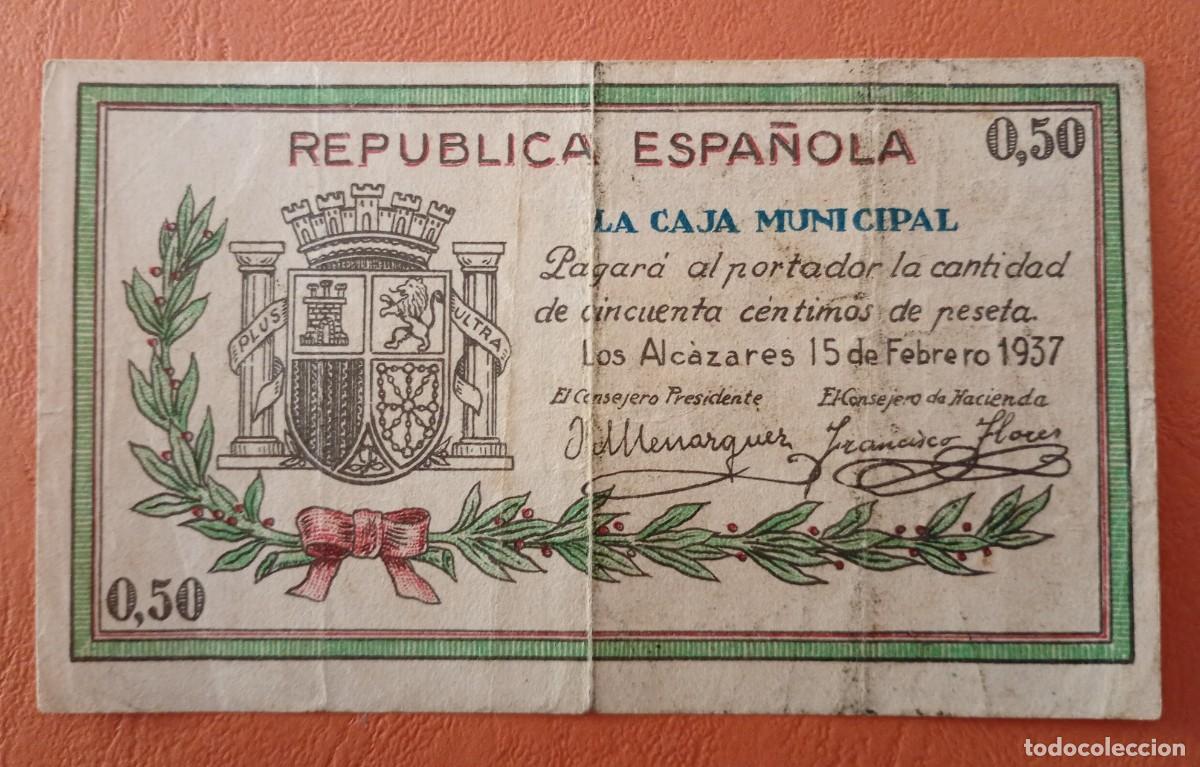 REPUBLICA ESPAÑOLA
0,50
LA CAJA MUNICIPAL
Pagará al portador la cantidad
de cincuenta céntimos de peseta.
Los Alcàzares 15 de Febrero 1937
El Consejero Presidente
El Consejero de Hacienda
Menarguez
Francisco Flores
PLUS
ULTRA
0,50
todocoleccion